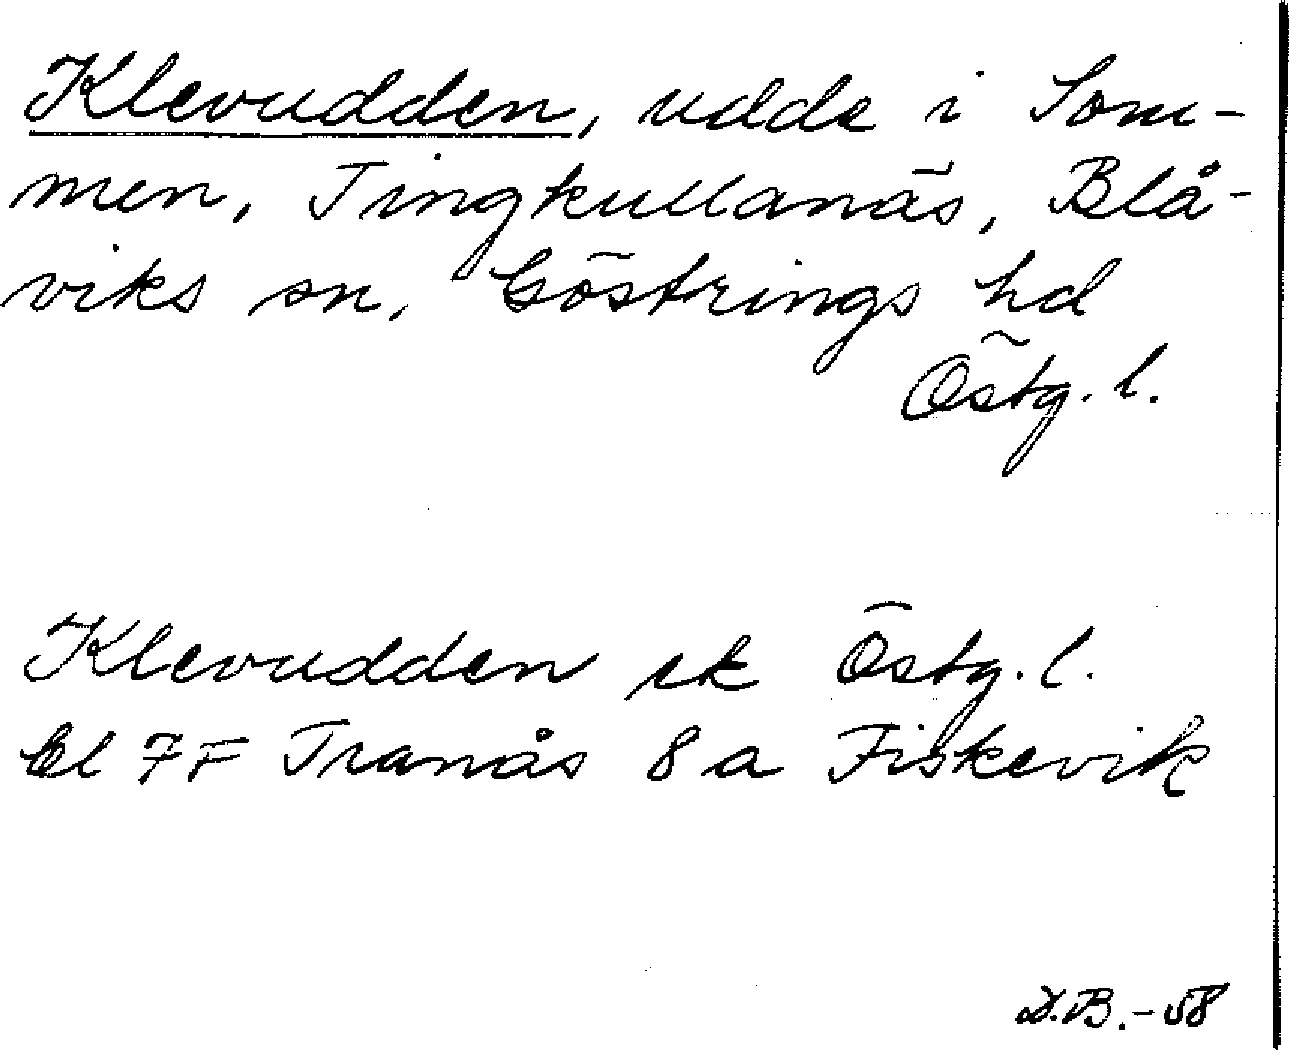 Klevudden, udde i Som-
men, Tingkullanäs, Blå-
viks sn, Göstrings hd
Östg. l.
Klevudden ek Östg. l.
bl 7F Tranås 8a Fiskevik
D.B.-58